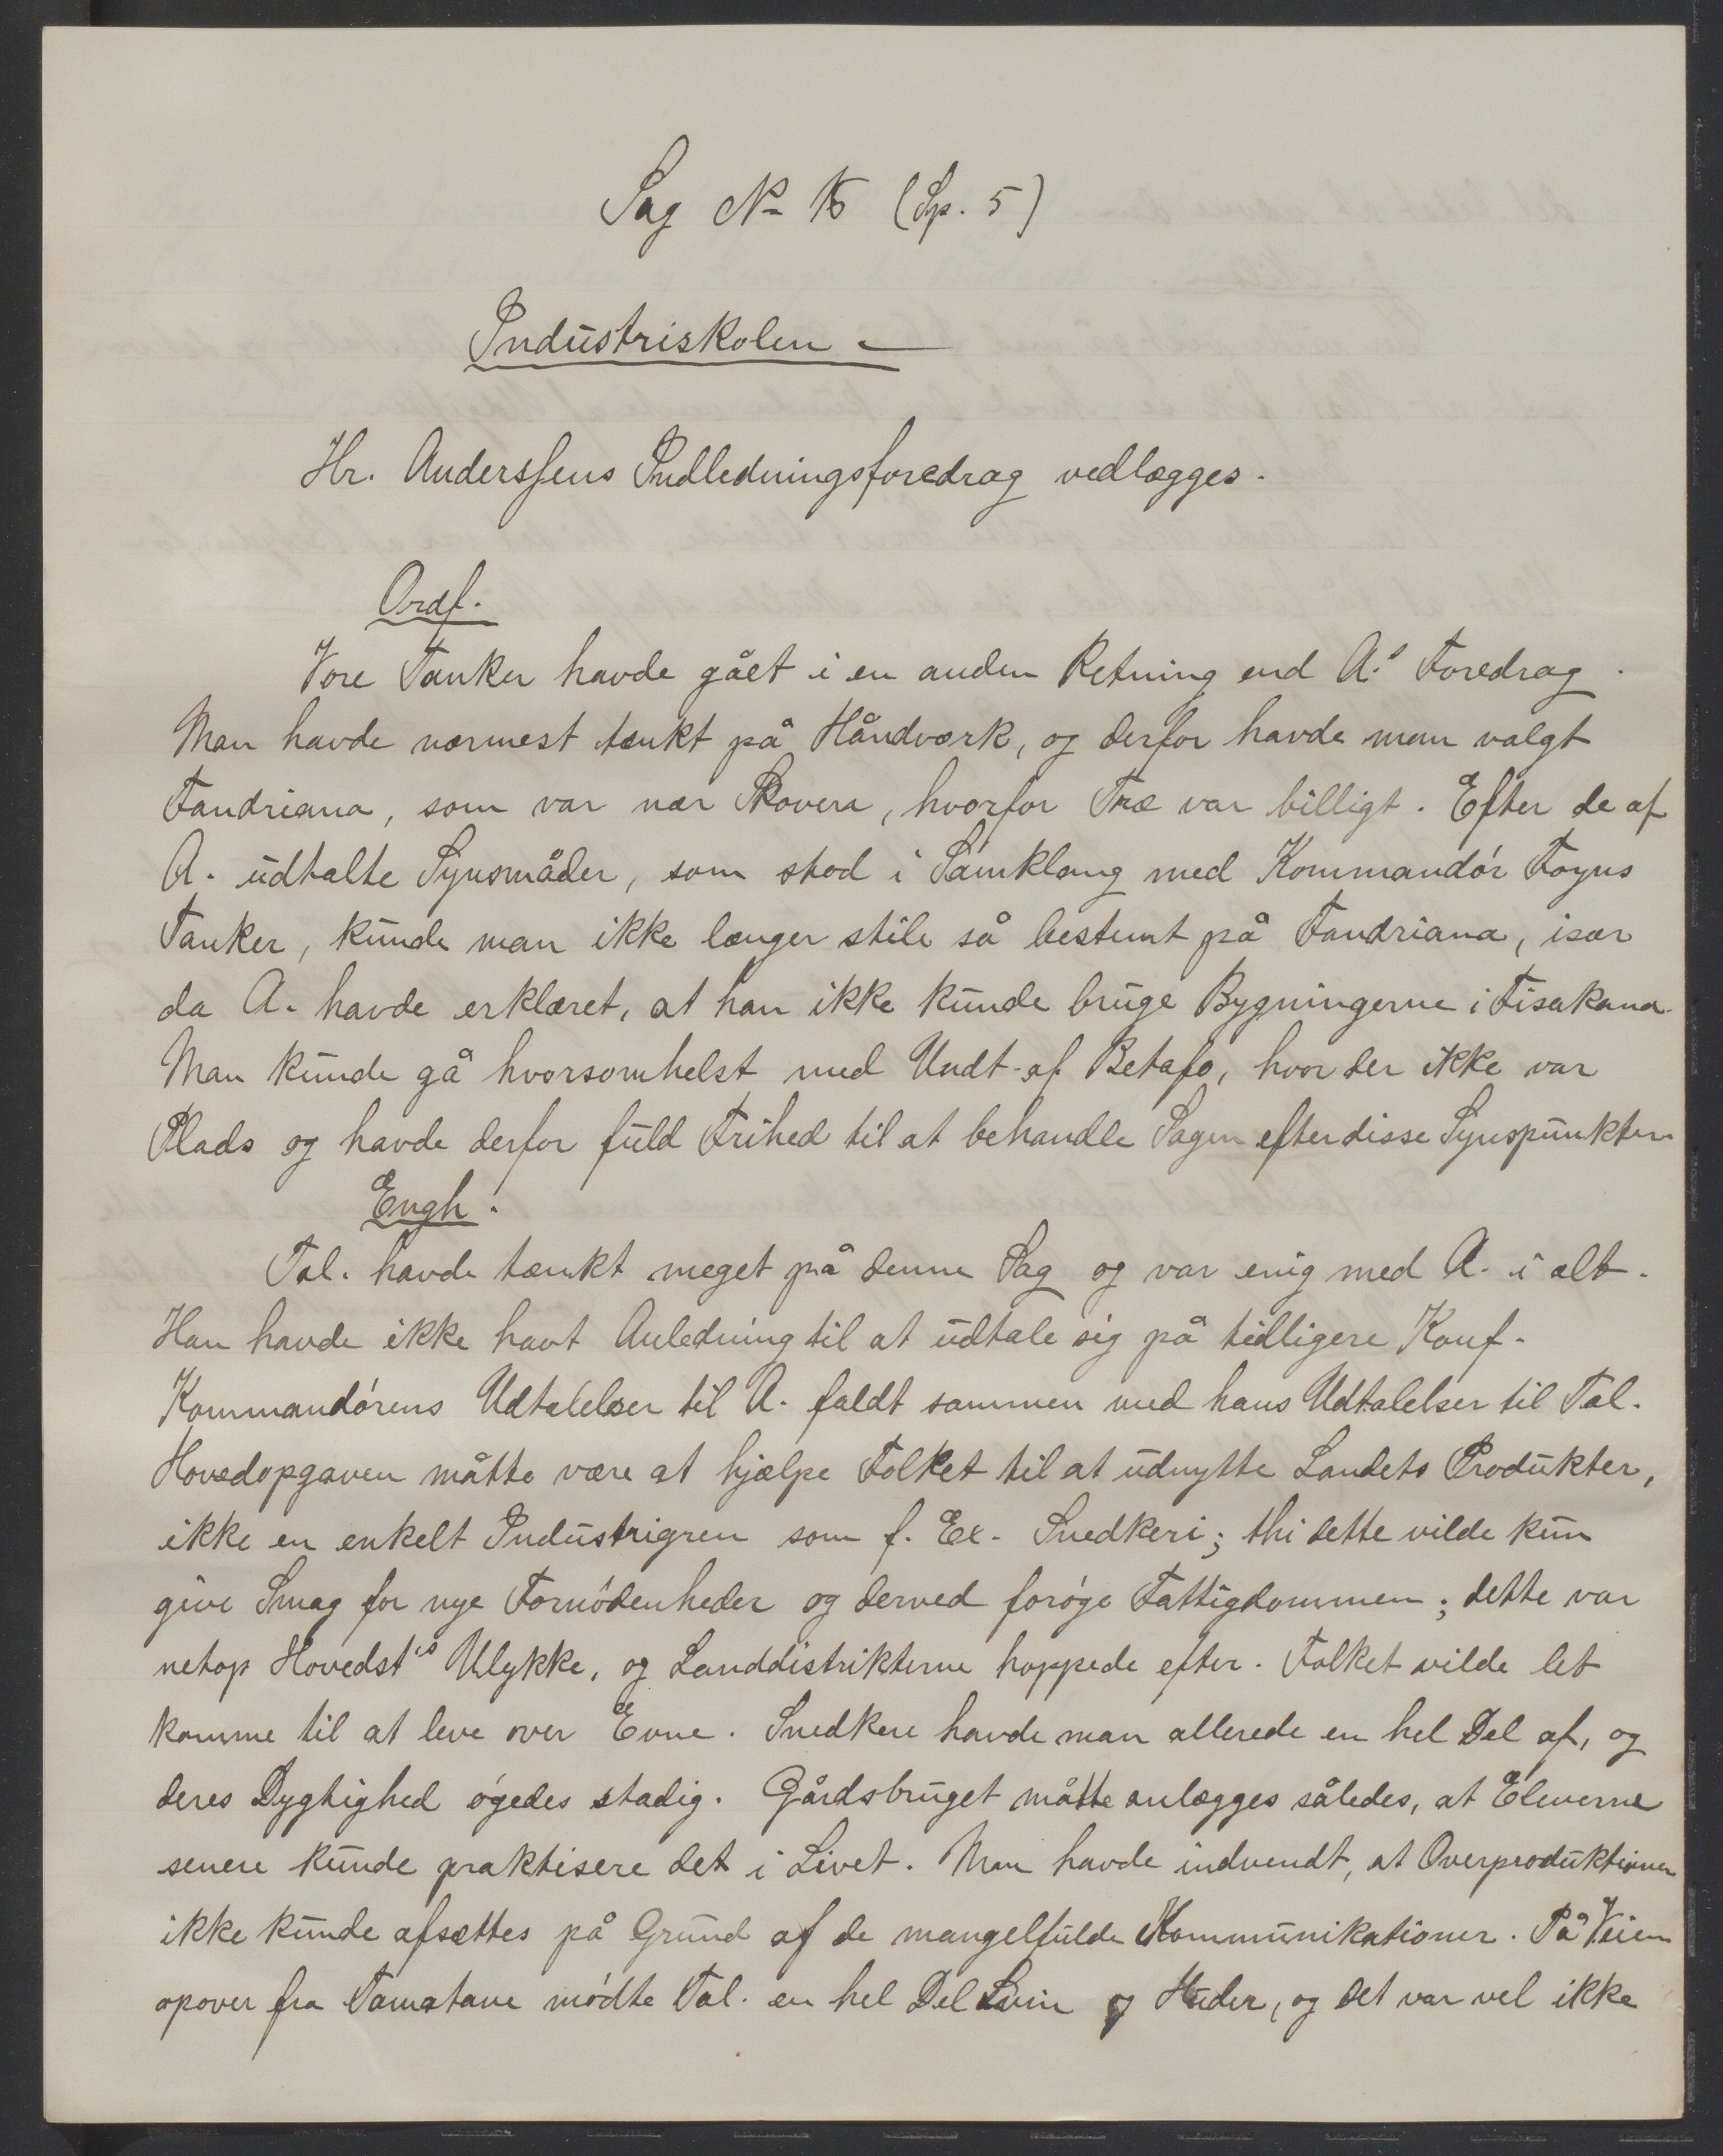 Sag No 15 (Sp. 5)
Industriskolen -
Hr. Anderssens Indledningsforedrag vedlægges.
Ordf.
Vore Tanker havde gået i en anden Retning end A.s Foredrag.
Man havde nærmest tænkt på Håndværk, og derfor havde man valgt
Fandriana, som var nær Skoven, hvorfor Træ var billigt. Efter de af
A. udtalte Synsmåder, som stod i Samklang med Kommandór Foyns
Tanker, kunde man ikke længer stile så bestemt på Fandriana, især
da A. havde erklæret, at han ikke kunde bruge Bygningerne i Fisakana.
Man kunde gå hvorsomhelst med Undt. af Betafo, hvor der ikke var
Plads og havde derfor fuld Frihed til at behandle Sagen efter disse Synspunkter.
Engh.
Tal. havde tænkt meget på denne Sag og var enig med A. i alt.
Han havde ikke havt Anledning til at udtale sig på tidligere Konf.
Kommandórens Udtalelser til A. faldt sammen med hans Udtalelser til Tal.
Hovedopgaven måtte være at hjælpe Folket til at udnytte Landets Produkter,
ikke en enkelt Industrigren som f. Ex. Snedkeri; thi dette vilde kun
give Smag for nye Fornódenheder og derved foróge Fattigdommen; dette var
netop Hovedst's Ulykke, og Landdistrikterne hoppede efter. Folket vilde let
komme til at leve over Evne. Snedkere havde man allerede en hel Del af, og
deres Dygtighed ógedes stadig. Gårdsbruget måtte anlægges således, at Eleverne
senere kunde praktisere det i Livet. Man havde indvendt, at Overproduktionen
ikke kunde afsættes på Grund af de mangelfulde Kommunikationer. På Veien
opover fra Tamatave módte Tal. en hel Del og Huder, og det var vel ikke